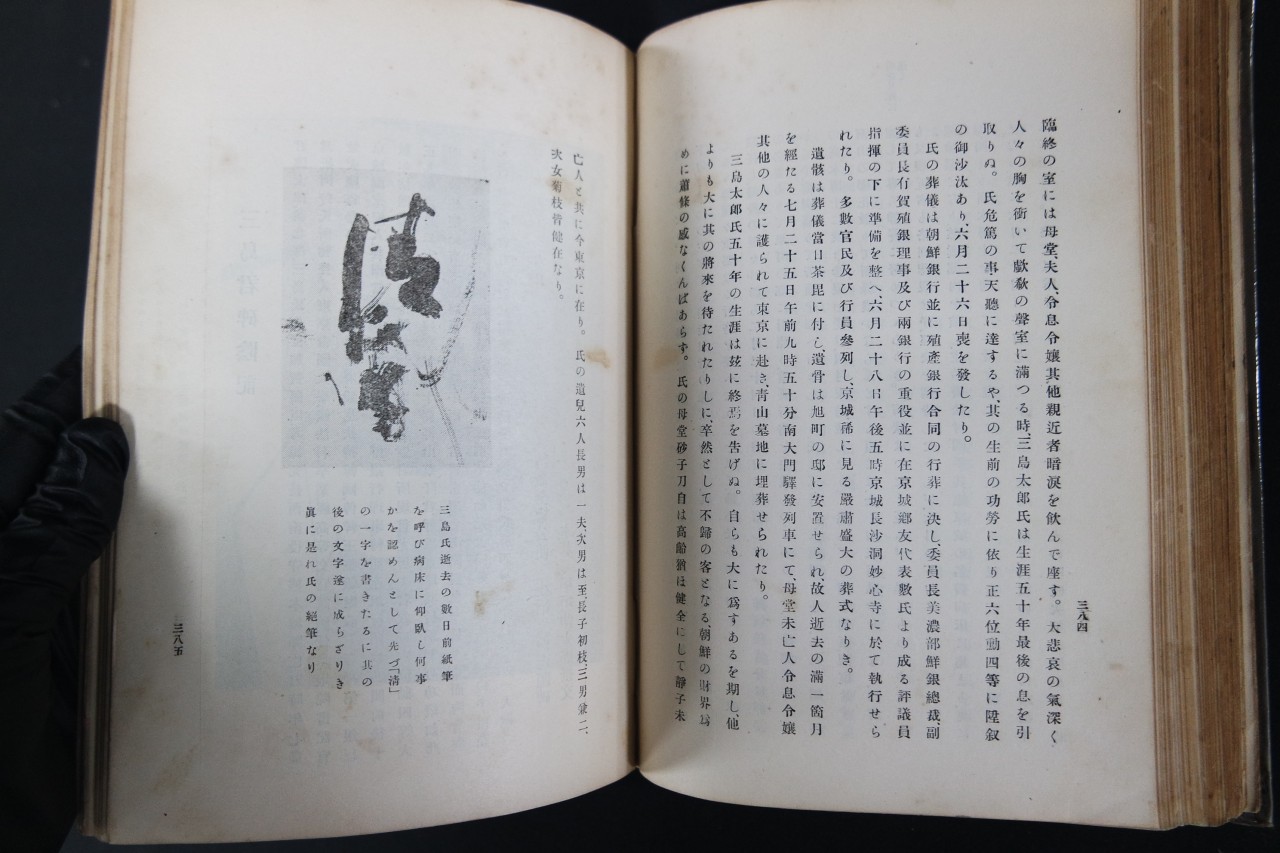 臨終の室には母堂、夫人、令息令孃其他親近者暗淚を飮んで座す。大悲哀の氣深く
人々の胸を衝いて歔欷の聲室に滿つる時、三島太郞氏は生涯五十年最後の息を引
取りぬ。氏危篤の事天聽に達するや、其の生前の功勞に依り正六位勳四等に陞叙
の御沙汰あり、六月二十六日喪を發したり。
氏の葬儀は朝鮮銀行並に殖產銀行合同の行葬に決し、委員長美濃部鮮銀總裁、副
委員長有賀殖銀理事及び兩銀行の重役並に在京城鄕友代表數氏より成る評議員
指揮の下に準備を整へ、六月二十八日午後五時京城長沙洞妙心寺に於て執行せら
れたり。多數官民及び行員參列し、京城稀に見る嚴肅盛大の葬式なりき。
遺骸は葬儀當日茶毘に付し、遺骨は旭町の邸に安置せられ、故人逝去の滿一箇月
を經たる七月二十五日午前九時五十分南大門驛發列車にて、母堂未亡人令息令孃
其他の人々に護られて東京に赴き、靑山墓地に埋葬せられたり。
三島太郞氏五十年の生涯は玆に終焉を吿げぬ。自らも大に爲すあるを期し、他
よりも大に其の將來を待たれたりしに卒然として不歸の客となる、朝鮮の財界爲
めに蕭條の感なくんばあらず。氏の母堂砂子刀自は高齡猶ほ健全にして靜子未
三八四
亡人と共に今東京に在り。氏の遺兒六人長男は一夫、次男は至、長子初枝、三男兼二、
次女菊枝皆健在なり。
淸
三島氏逝去の數日前紙筆
を呼び病床に仰臥し何事
かを認めんとして先づ「淸」
の一字を書きたるに其の
後の文字遂に成らざりき
眞に是れ氏の絕筆なり
三八五